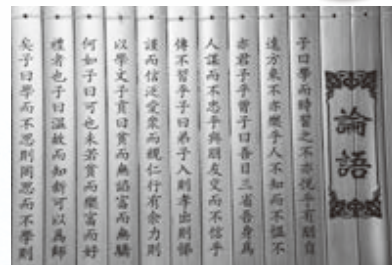 論語
子曰學而時習之不亦悅乎有朋自
遠方來不亦樂乎人不知而不慍不
亦君子乎曾子曰吾日三省吾身爲
人謀而不忠乎與朋友交而不信乎
傳不習乎子曰弟子入則孝出則悌
謹而信泛愛衆而親仁行有余力則
以學文子貢曰貧而無諂富而無驕
何如子曰可也未若貧而樂富而好
禮者也子曰溫故而知新可以爲師
矣子曰學而不思則罔思而不學則